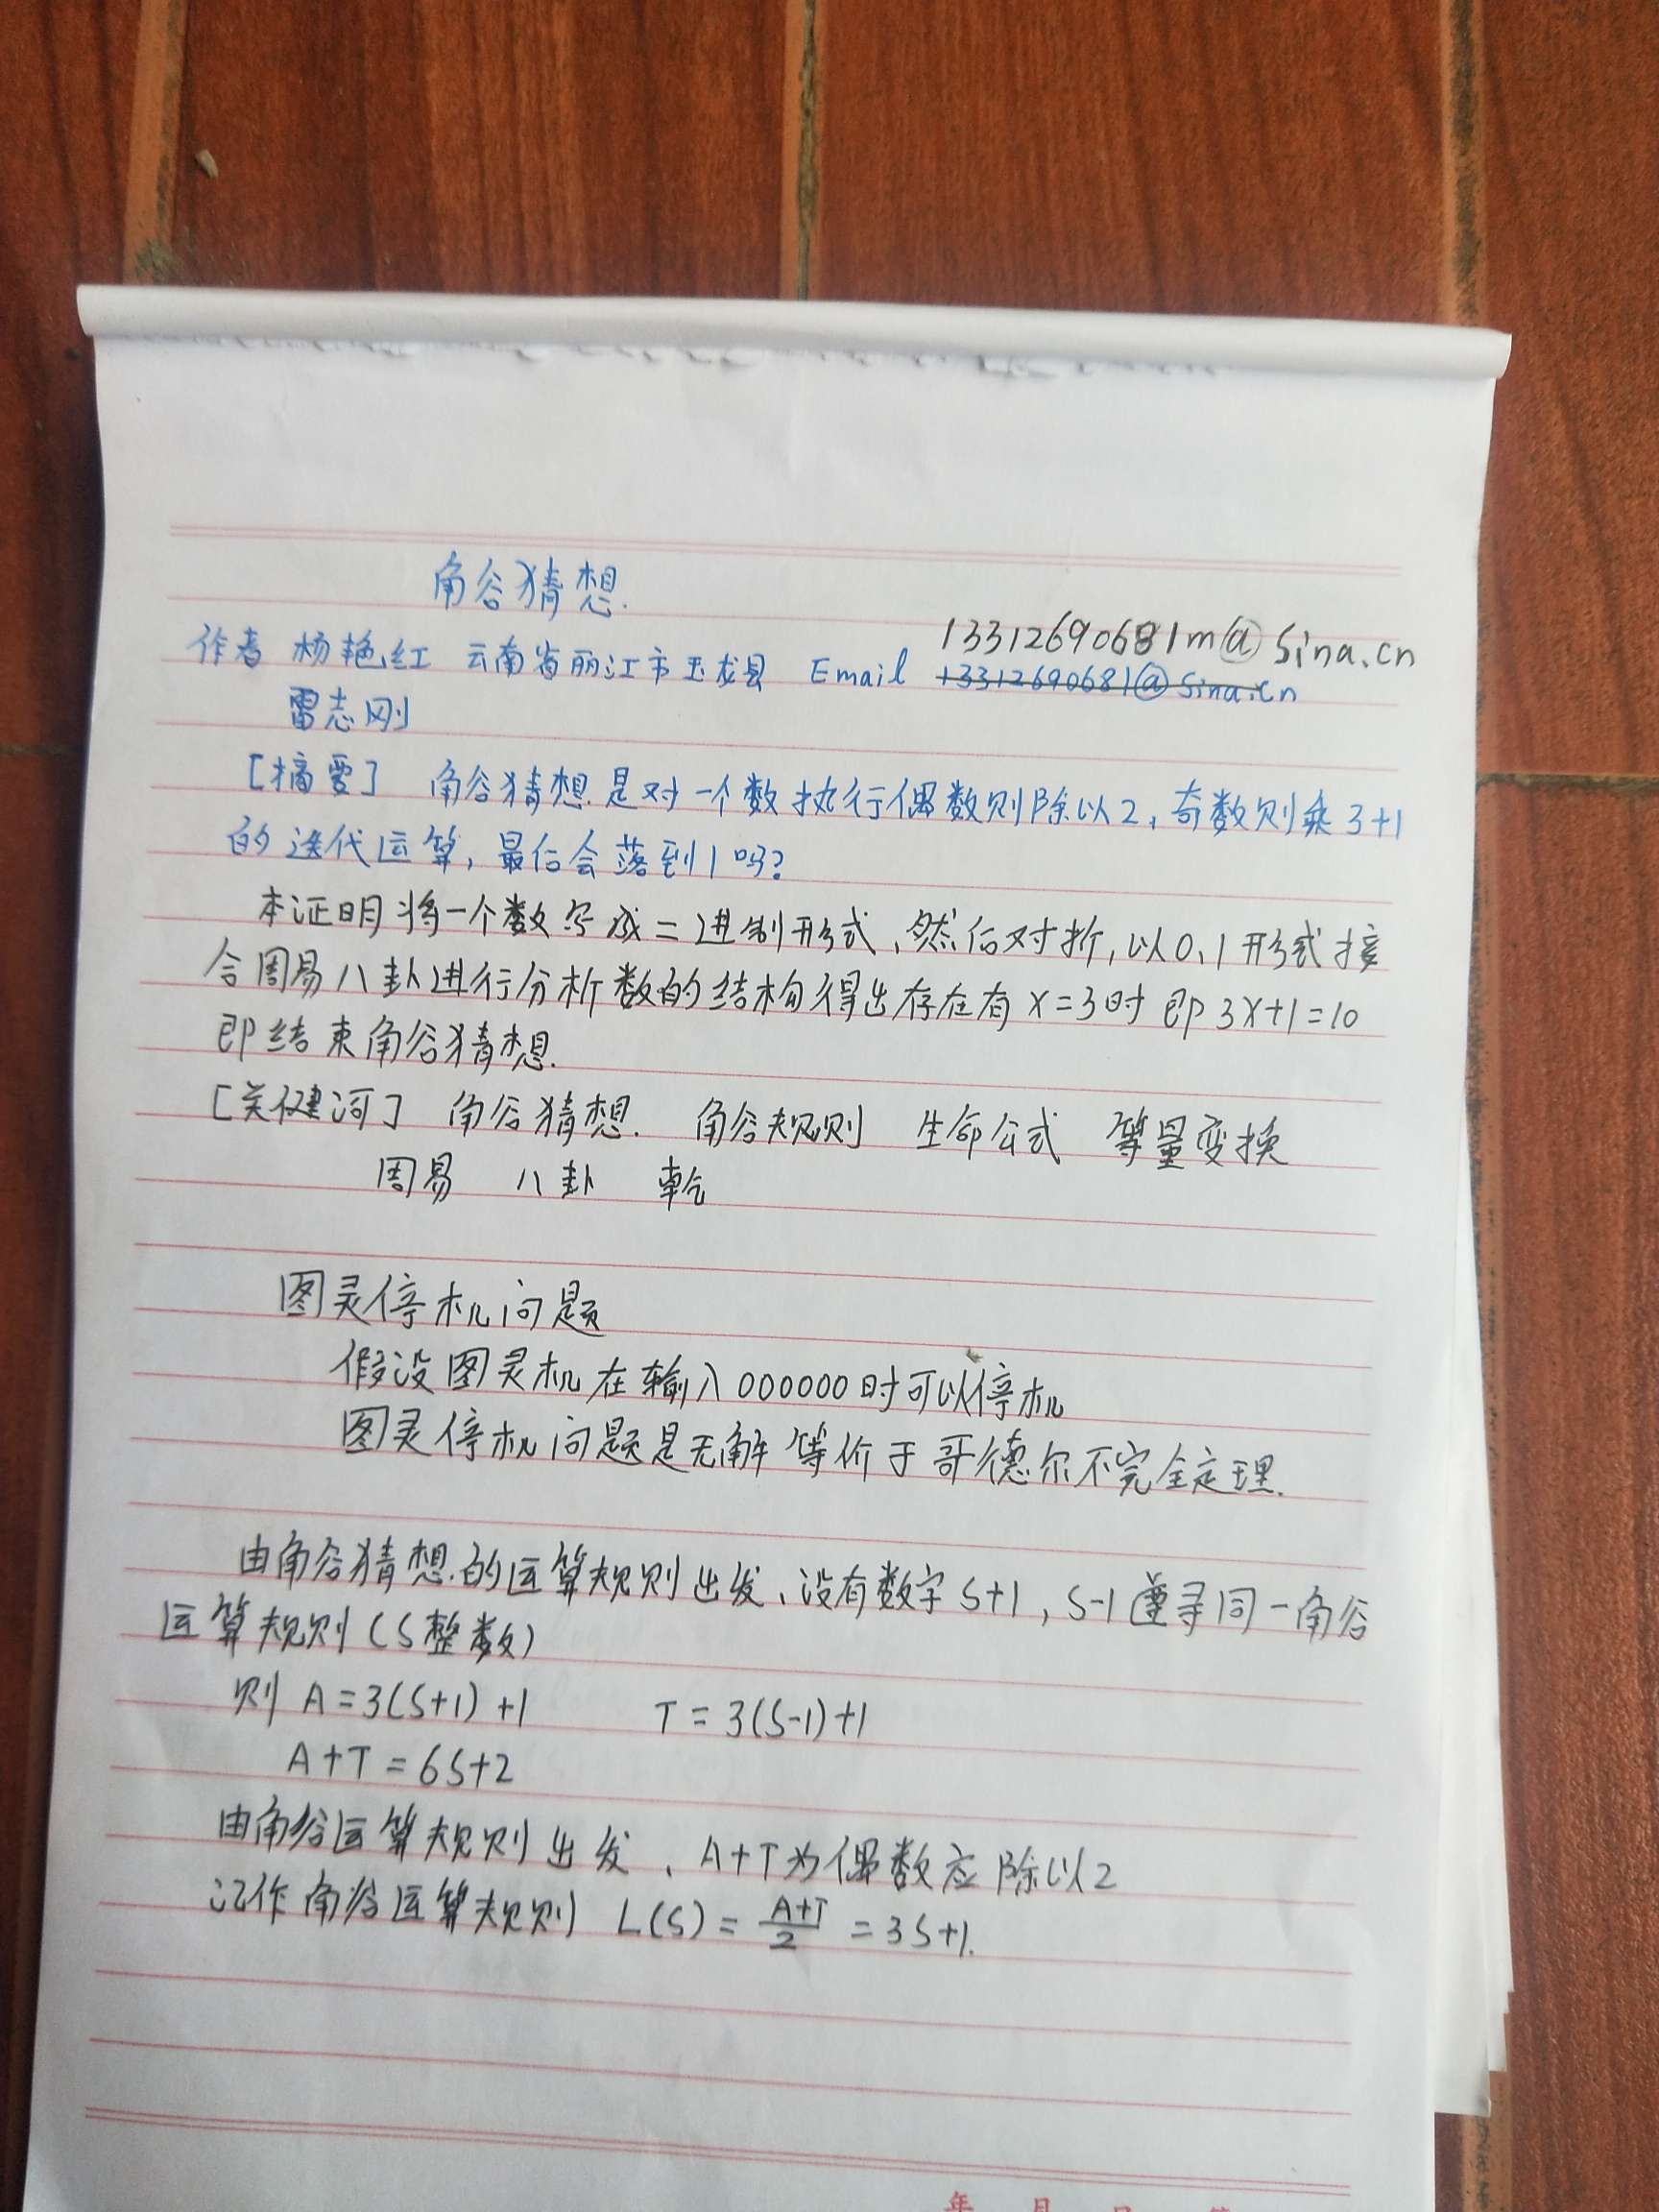 角谷猜想.
作者 杨艳红 云南省丽江市玉龙县 Email 13312690681m@sina.cn
13312690681@sina.cn
雷志刚
[摘要] 角谷猜想是对一个数执行偶数则除以2,奇数则乘3+1
的迭代运算,最后会落到1吗?
本证明将一个数写成二进制形式、然后对折,以0、1形式接
合周易八卦进行分析数的结构得出存在有x=3时 即3x+1=10
即结束角谷猜想.
[关键词] 角谷猜想. 角谷规则 生命公式 等量变换
周易 八卦 乾
图灵停机问题
假设图灵机在输入000000时可以停机
图灵停机问题是无解等价于哥德尔不完全定理.
由角谷猜想的运算规则出发、设有数字S+1,S-1遵寻同一角谷
运算规则(S整数)
则 A=3(S+1)+1 T=3(S-1)+1
A+T=6S+2
由角谷运算规则出发、A+T为偶数应除以2
记作角谷运算规则 L(S)=\frac{A+T}{2}=3S+1.
年 月 日